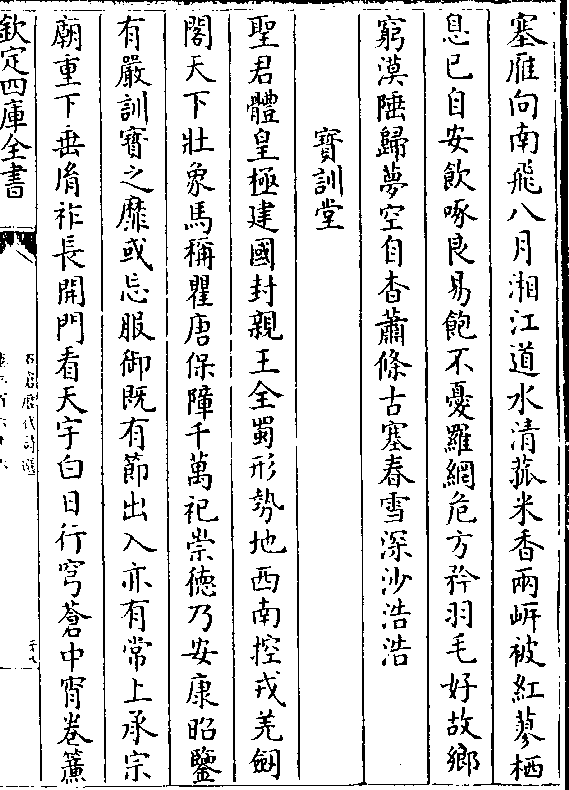 塞雁向南飛八月湘江道水清菰米香兩岍被紅蓼栖
息已自安飲啄良易飽不憂羅網危方矜羽毛好故鄉
窮漠陲歸夢空自杳蕭條古塞春雪深沙浩浩
寳訓堂
聖君體皇極建國封親王全蜀形勢地西南控戎羌劔
閣天下壯象馬稱瞿唐保障千萬祀崇德乃安康昭鑒
有嚴訓寳之靡或忘服御既有節出入亦有常上承宗
廟重下垂胤祚長開門看天宇白日行穹蒼中宵卷簾
欽定四庫全書